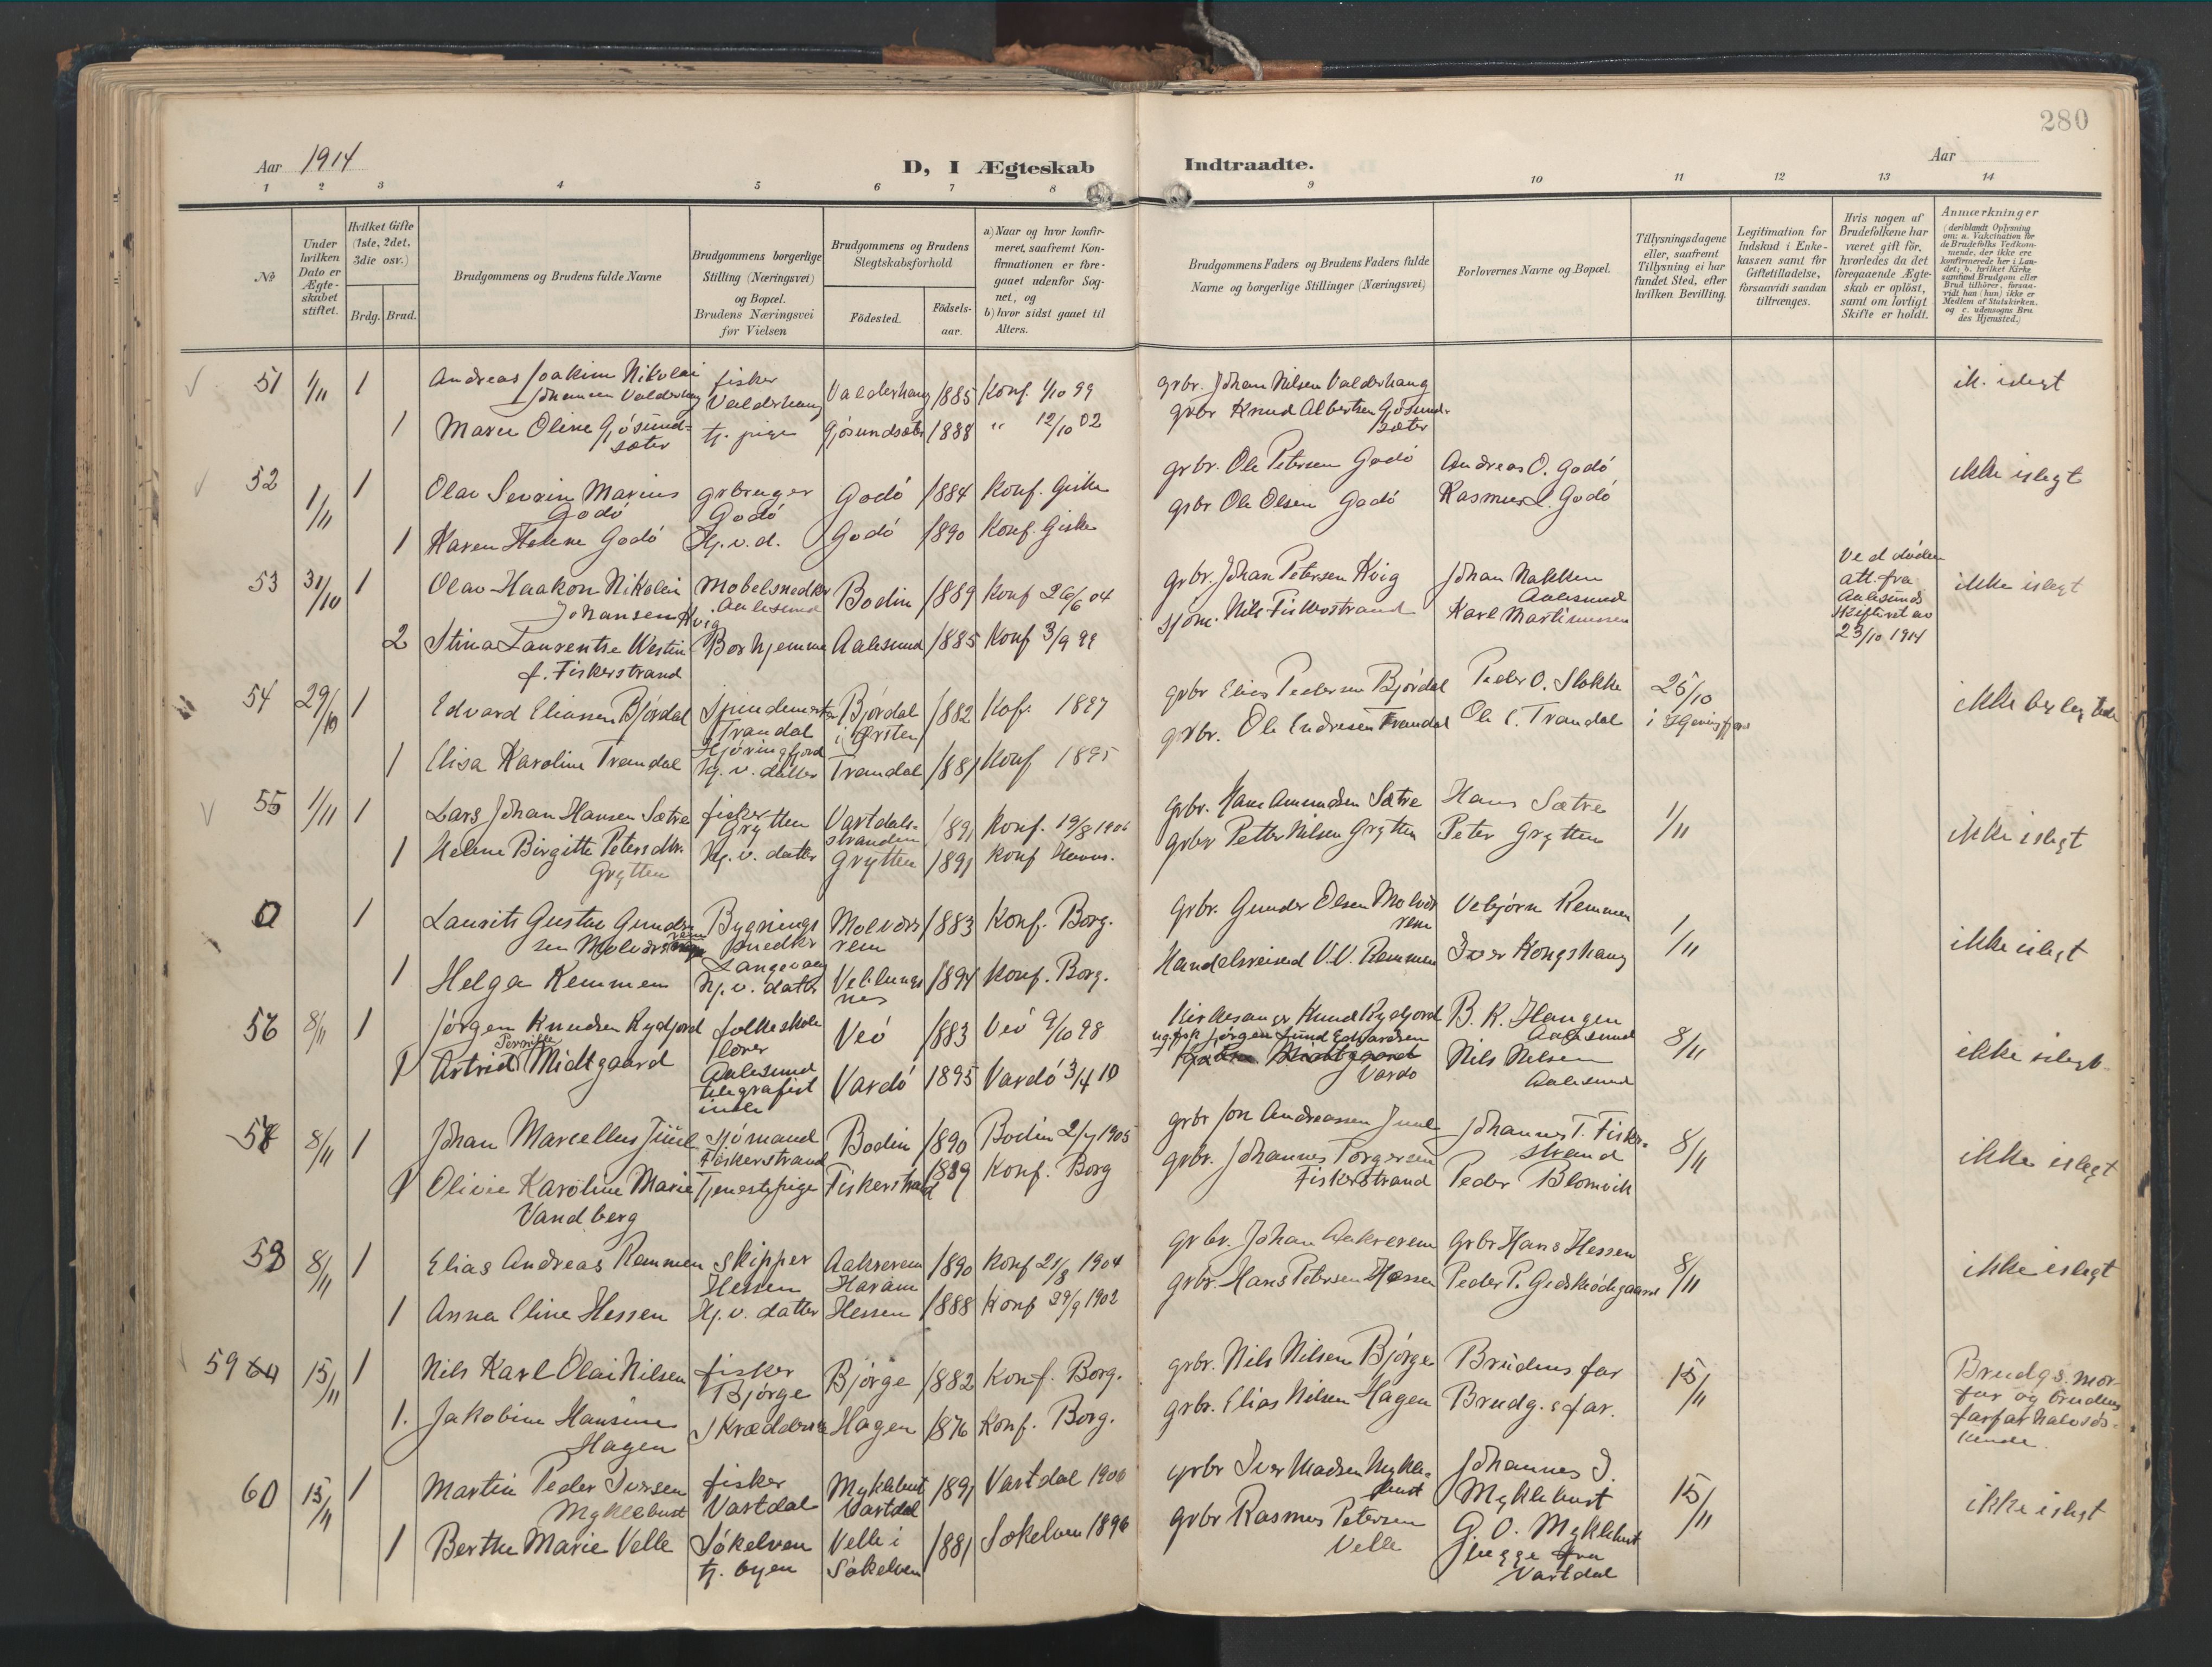 280
Aar 1914
D, I Ægteskab Indtraadte.
Aar
1 2 3 4 5 6 7 8 9 10 11 12 13 14
No
Under hvilken Dato er Ægteskabet stiftet.
Hvilket Gifte (1ste, 2det, 3die osv.)
Brdg. Brud.
Brudgommens og Brudens fulde Navne
Brudgommens borgerlige Stilling (Næringsvei) og Bopæl. Brudens Næringsvei før Vielsen
Brudgommens og Brudens Slegtskabsforhold
Fødested. Fødselsaar.
a) Naar og hvor konfirmeret, saafremt Konfirmationen er foregaaet udenfor Sognet, og
b) hvor sidst gaaet til Alters.
Brudgommens Faders og Brudens Faders fulde Navne og borgerlige Stillinger (Næringsvei)
Forlovernes Navne og Bopæl.
Tillysningsdagene eller, saafremt Tillysning ei har fundet Sted, efter hvilken Bevilling.
Legitimation for Indskud i Enkekassen samt for Giftetilladelse, forsaavidt saadan tiltrænges.
Hvis nogen af Brudefolkene har været gift før, hvorledes da det foregaaende Ægteskab er opløst, samt om lovligt Skifte er holdt.
Anmærkninger (deriblandt Oplysning om: a. Vakcination for de Brudefolks Vedkommende, der ikke ere konfirmerede her i Landet; b. hvilket Kirkesamfund Brudgom eller Brud tilhører, forsaavidt han (hun) ikke er Medlem af Statskirken, og c. udensogns Brudes Hjemsted.)
51 1/11 1 Andreas Joakim Nikolai Johansen Valderhaug fisker Valderhaug Valderhaug 1885 Konf. 1/10 99 grbr. Johan Nilsen Valderhaug ik. islegt
1 Maren Oline Gjøsundsæter tj. pige Gjøsundsæter 1888 " 12/10 02 grbr Knud Albertsen Gjøsundsæter
52 1/11 1 Olav Sevrin Marius Godø grbruger Godø Godø 1884 Konf. Giske grbr. Ole Petersen Godø Andreas O. Godø ikke islegt
1 Karen Helene Godø Hj.v.d. Godø 1890 Konf. Giske grbr Ole Olsen Godø Rasmus L. Godø
53 31/10 1 Olav Haakon Nikolai Johansen Kvig Møbelsnedker Aalesund Bodin 1889 Konf 26/6 04 grbr. Johan Petersen Kvig Johan Nakken Aalesund Ved døden att. fra Aalesunds skifteret av 23/10 1914 ikke islegt
2 Stina Laurentse Westin f. Fiskerstrand Bor hjemme Aalesund 1885 Konf 3/9 99 sjøm. Nils Fiskerstrand Karl Martinussen
54 29/10 1 Edvard Eliassen Bjørdal Spindemester Trandal Hjøringfjord Bjørdal i Ørsten 1882 Kof. 1897 grbr Elias Pedersen Bjørdal Peder O. Slokke 25/10 i ikke beslegtede
1 Elisa Karoline Trandal Hj.v. datter Trandal 1881 Konf 1895 grbr. Ole Endresen Trandal Ole E. Trandal
55 1/11 1 Lars Johan Hansen Sætre fisker Grytten Vartdalsstranden 1891 Konf. 19/8 1906 grbr. Hans Amundsen Sætre Hans Sætre 1/11 ikke islegt
1 Helene Birgitte Petersdtr. Grytten Hj.v. datter Grytten 1891 Konf Havns. grbr Petter Nilsen Grytten Peter Grytten
0 1 Laurits Gustav Gundersen Molværsrem Bygnings snedker Langevaag Molværsrem 1883 Konf. Borg. grbr. Gunder Olsen Molværsrem Vebjørn Remmen 1/11 ikke islegt
1 Helga Remmen Hj.v. datter Veblungsnes 1894 Konf. Borg. Handelsreisend V.V. Remmen Iver Kongshaug
56 8/11 1 Jørgen Knudsen Rydjord folkeskolelærer Aalesund Veø 1883 Veø 9/10 98 Kirkesanger Knud Rydjord B. K. Haugen Aalesund 8/11 ikke islegt
1 Astrid Pernille Midtgaard telegrafistinde Vardø 1895 Vardø 3/4 10 ug. fisk Jørgen Juud Edvardsen Vardø Nils Nilsen Aalesund
57 8/11 1 Johan Marcellus Juul sjømand Fiskerstrand Bodin 1890 Bodin 2/7 1905 grbr Jon Andreassen Juul Johannes T. Fiskerstrand 8/11 ikke islegt
1 Olivie Karoline Marie Vandberg Tjenestepige Fiskerstrand 1889 Konf. Borg grbr. Johannes Torgersen Fiskerstrand Peder Blomvik
58 8/11 1 Elias Andreas Remmen skipper Hessen Aakrerem Haram 1890 Konf 21/8 1904 grbr. Johan Aakrerem Grbr Hans Hessen 8/11 ikke islegt
1 Anna Eline Hessen Hj.v. datter Hessen 1888 Konf 29/9 1902 grbr. Hans Petersen Hessen Peder P. Gedskødegaard
59 15/11 1 Nils Karl Olai Nilsen fisker Bjørge Bjørge 1882 Konf. Borg. grbr. Nils Nilsen Bjørge Brudens far 15/11 Brudgs. morfar og brudens farfar halvsøskende.
1. Jakobine Hansine Hagen Skrædderske Hagen 1876 Konf. Borg. grbr. Elias Nilsen Hagen Brudg.s far.
60 15/11 1 Martin Peder Iversen Myklebust fisker Vartdal Myklebust Vartdal 1891 Vartdal 1906 grbr Iver Madsen Myklebust Johannes J. Myklebust 15/11 ikke islegt
1 Berthe Marie Velle Søkelven tj. byen Velle i Søkelven 1881 Søkelven 1896 grbr Rasmus Petersen Velle G. O. Myklebust begge fra Vartdal